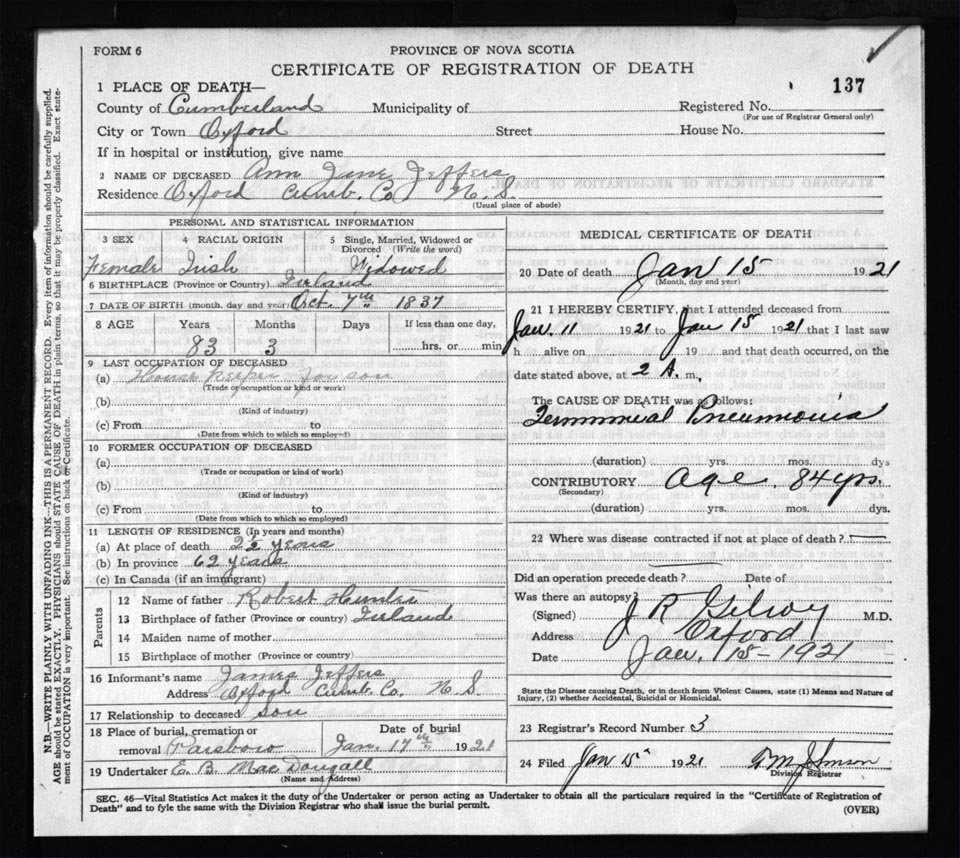 FORM 6
PROVINCE OF NOVA SCOTIA
CERTIFICATE OF REGISTRATION OF DEATH
137
1 PLACE OF DEATH—
County of Cumberland Municipality of Registered No.
(For use of Registrar General only)
City or Town Oxford Street House No.
If in hospital or institution, give name
2 NAME OF DECEASED Ann Jane Jeffers
Residence Oxford Cumb. Co N. S.
(Usual place of abode)
PERSONAL AND STATISTICAL INFORMATION
3 SEX 4 RACIAL ORIGIN 5 Single, Married, Widowed or Divorced (Write the word)
Female Irish Widowed
6 BIRTHPLACE (Province or Country) Irland
7 DATE OF BIRTH (month, day and year) Oct. 7th 1837
8 AGE Years Months Days If less than one day,
83 3 hrs. or min.
9 LAST OCCUPATION OF DECEASED
(a) House keeper for son
(Trade or occupation or kind of work)
(b)
(Kind of industry)
(c) From to
(Date from which to which so employed)
10 FORMER OCCUPATION OF DECEASED
(a)
(Trade or occupation or kind of work)
(b)
(Kind of industry)
(c) From to
(Date from which to which so employed)
11 LENGTH OF RESIDENCE (In years and months)
(a) At place of death 22 years
(b) In province 62 years
(c) In Canada (if an immigrant)
Parents
12 Name of father Robert Hunter
13 Birthplace of father (Province or country) Irland
14 Maiden name of mother
15 Birthplace of mother (Province or country)
16 Informant's name James Jeffers
Address Oxford Cumb. Co. N. S.
17 Relationship to deceased son
18 Place of burial, cremation or removal Parsboro
Date of burial
Jan. 17th 1921
19 Undertaker E. B. MacDougall
(Name and Address)
MEDICAL CERTIFICATE OF DEATH
20 Date of death Jan 15 1921
(Month, day and year)
21 I HEREBY CERTIFY, that I attended deceased from
Jan. 11 1921 to Jan 15 1921 that I last saw
h alive on 19 and that death occurred, on the
date stated above, at 2 A. m.,
The CAUSE OF DEATH was as follows:
Pneumonia
(duration) yrs. mos. dys
CONTRIBUTORY Age 84 yrs.
(Secondary)
(duration) yrs. mos. dys.
22 Where was disease contracted if not at place of death?
Did an operation precede death? Date of
Was there an autopsy?
(Signed) J R Gilroy M.D.
Address Oxford
Date Jan. 15-1921
State the Disease causing Death, or in death from Violent Causes, state (1) Means and Nature of
Injury, (2) whether Accidental, Suicidal or Homicidal.
23 Registrar's Record Number 3
24 Filed Jan 15 1921 Johnson
Division Registrar
SEC. 46—Vital Statistics Act makes it the duty of the Undertaker or person acting as Undertaker to obtain all the particulars required in the "Certificate of Registration of
Death" and to fyle the same with the Division Registrar who shall issue the burial permit.
(OVER)
N.B.—WRITE PLAINLY WITH UNFADING INK—THIS IS A PERMANENT RECORD. Every item of information should be carefully supplied.
AGE should be stated EXACTLY. PHYSICIANS should STATE CAUSE OF DEATH in plain terms, so that it may be properly classified. Exact state-
ment of OCCUPATION is very important. See instructions on back of Certificate.